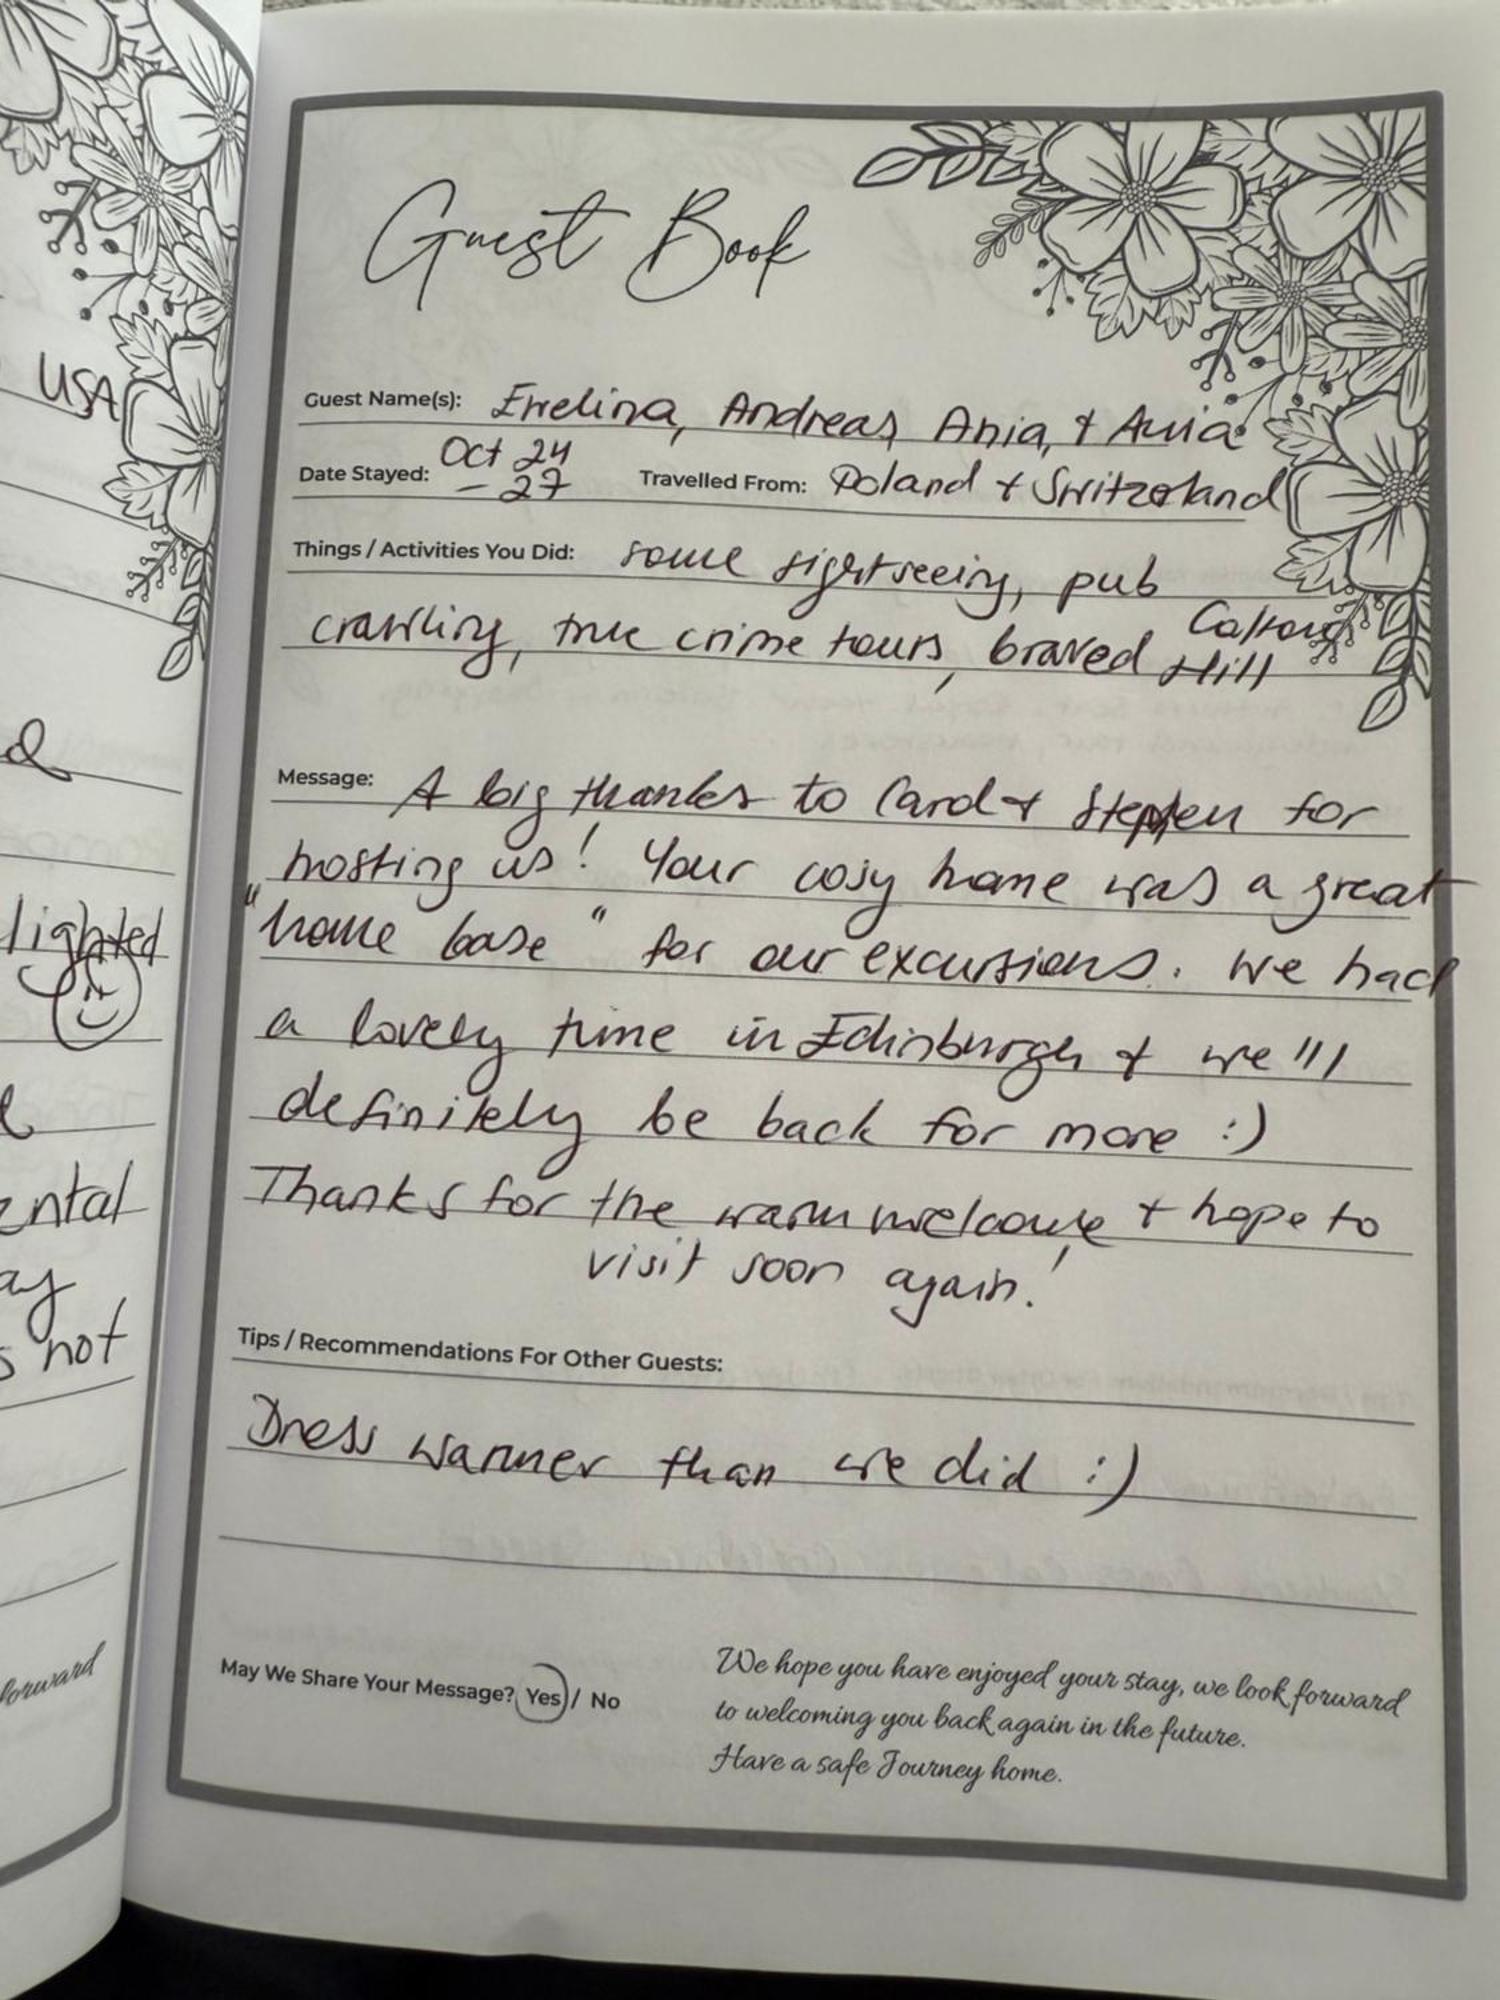 USA
d
lighted
ental
ay
s not
forward
Guest Book
Guest Name(s): Ewelina, Andreas, Ania, + Ania
Date Stayed: Oct 24 - 27 Travelled From: Poland + Switzerland
Things / Activities You Did: some sightseeing, pub
crawling, true crime tours, braved Calton Hill
Message: A big thanks to Carol + Stephen for
hosting us! Your cosy home was a great
"home base" for our excursions. We had
a lovely time in Edinburgh + we'll
definitely be back for more :)
Thanks for the warm welcome + hope to
visit soon again!
Tips / Recommendations For Other Guests:
Dress warmer than we did :)
May We Share Your Message? Yes / No
We hope you have enjoyed your stay, we look forward
to welcoming you back again in the future.
Have a safe Journey home.